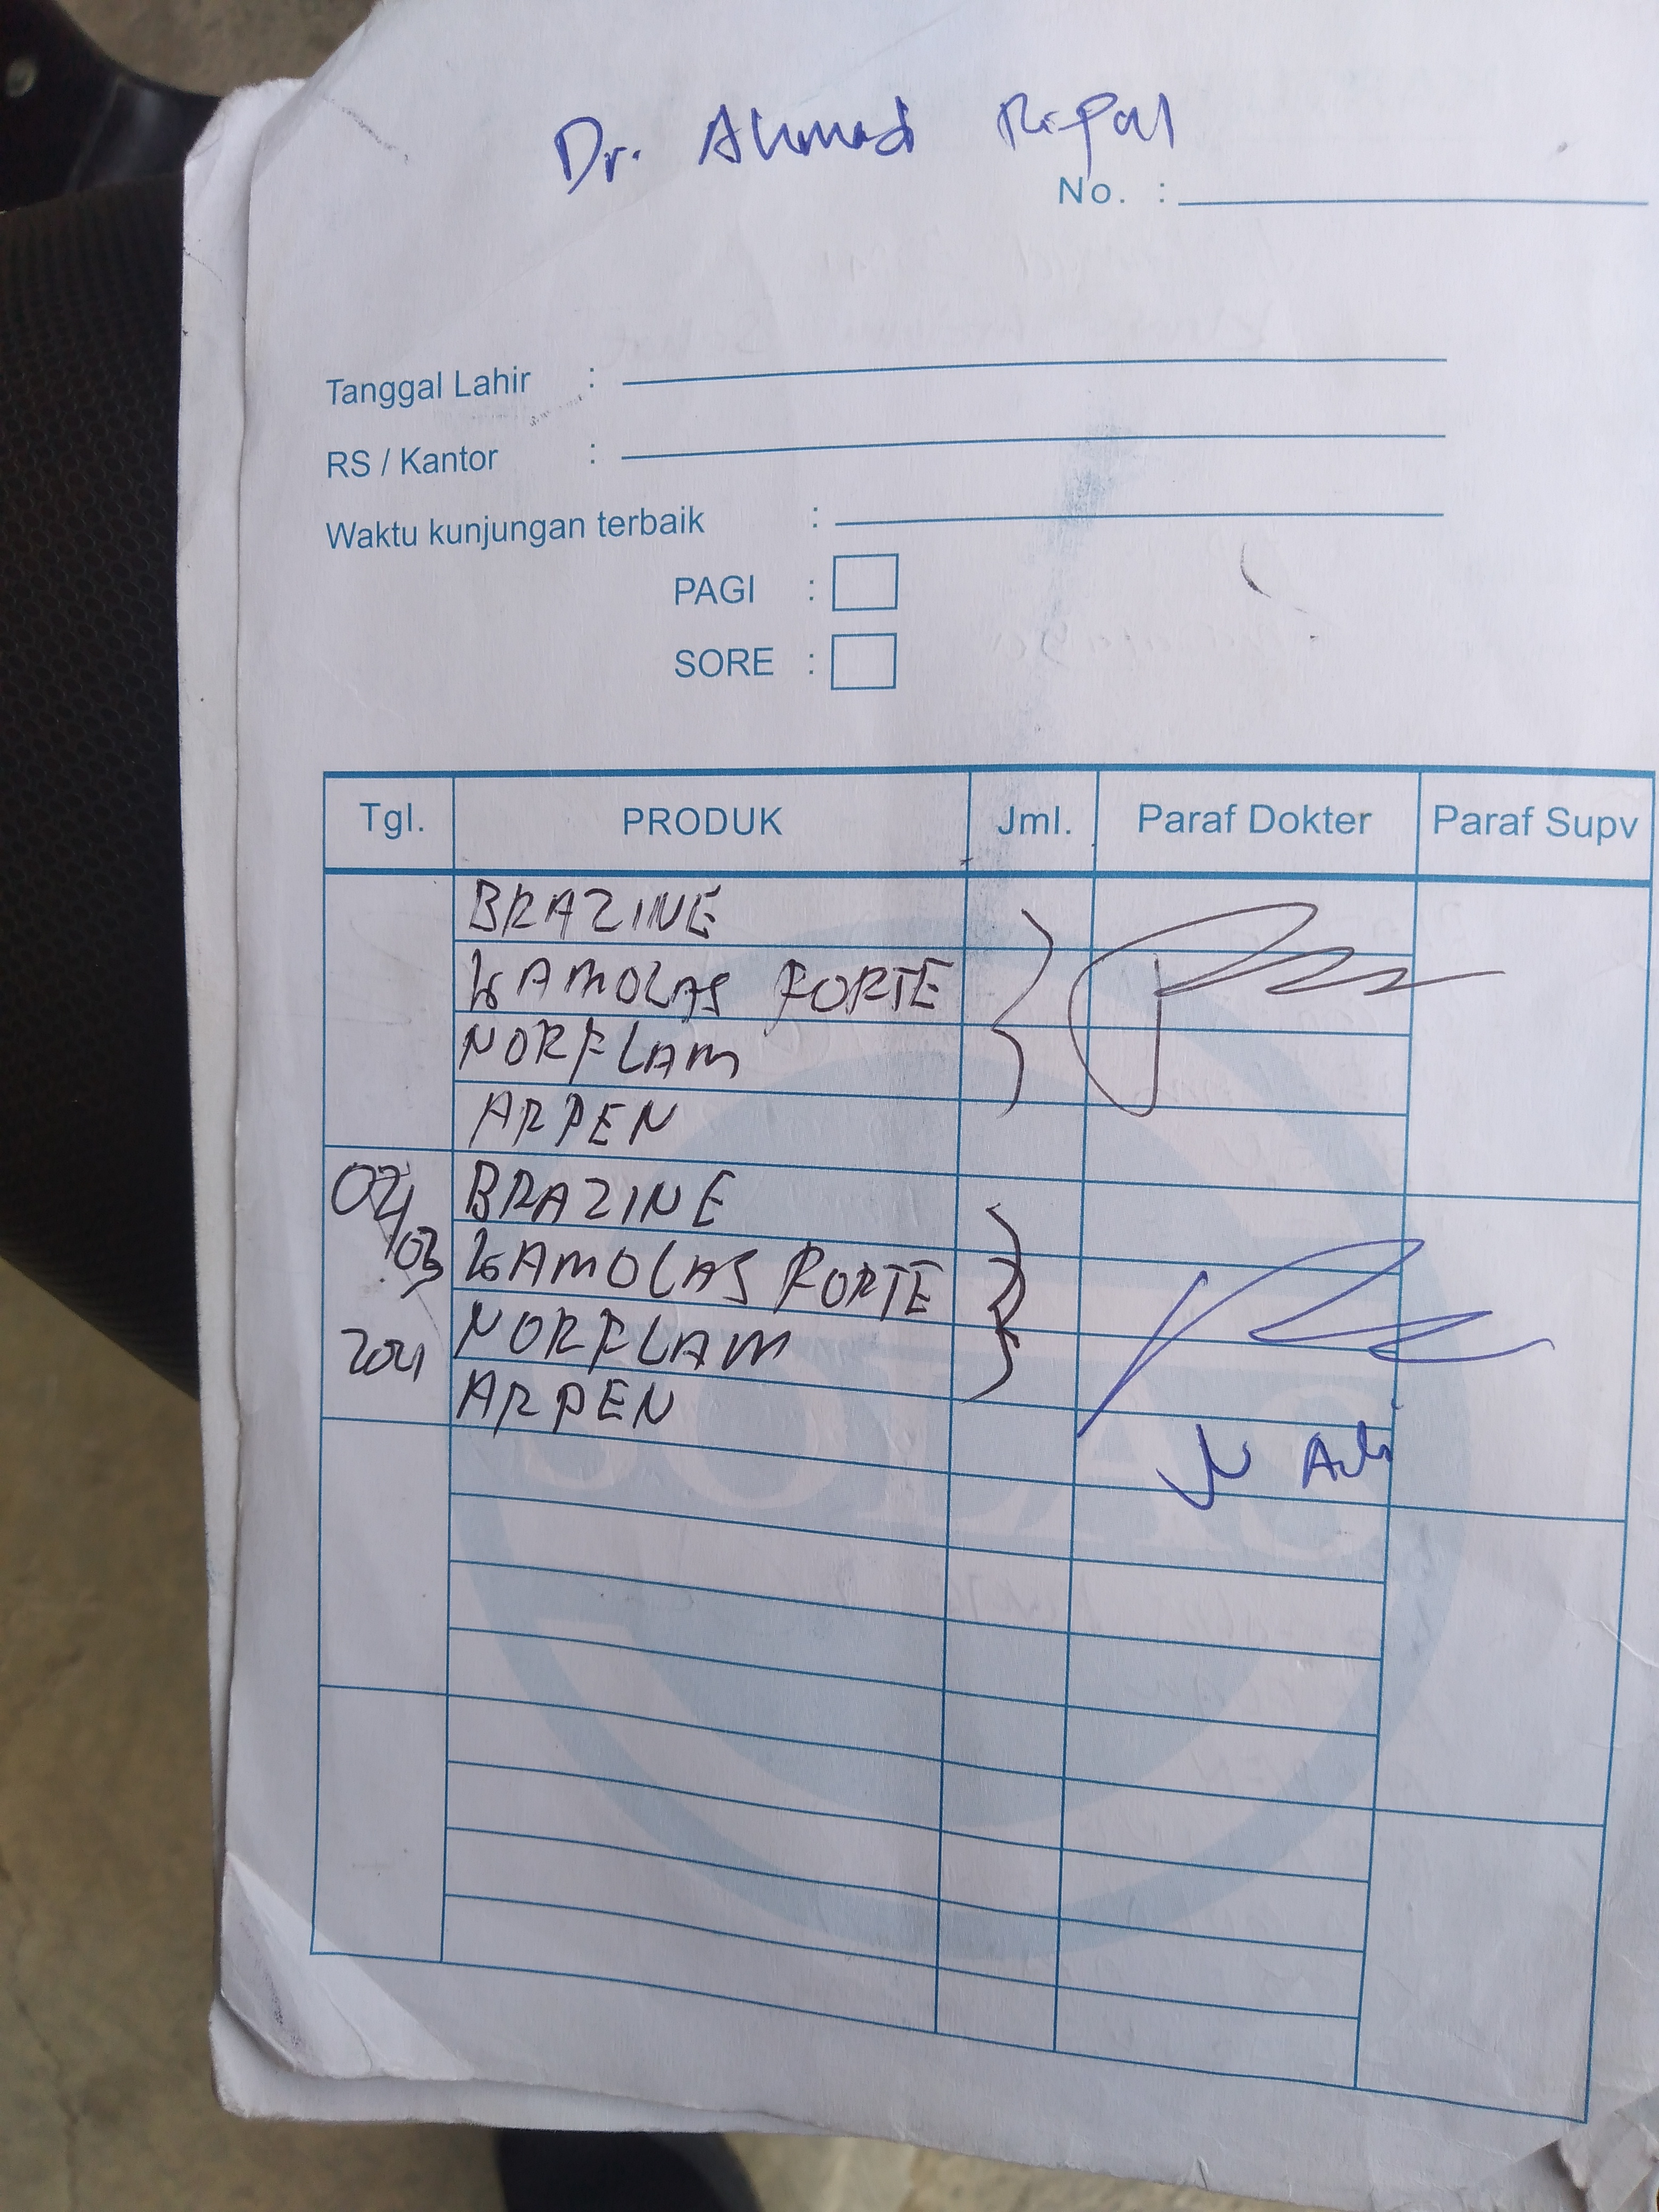 Dr. Ahmad Rifal
No. :
Tanggal Lahir :
RS / Kantor :
Waktu kunjungan terbaik :
PAGI :
SORE :
Tgl. PRODUK Jml. Paraf Dokter Paraf Supv
BRAZINE
LAMOLAS FORTE
NORFLAM
ARPEN
02/03 BRAZINE
LAMOLAS FORTE
2021 NORFLAM
ARPEN